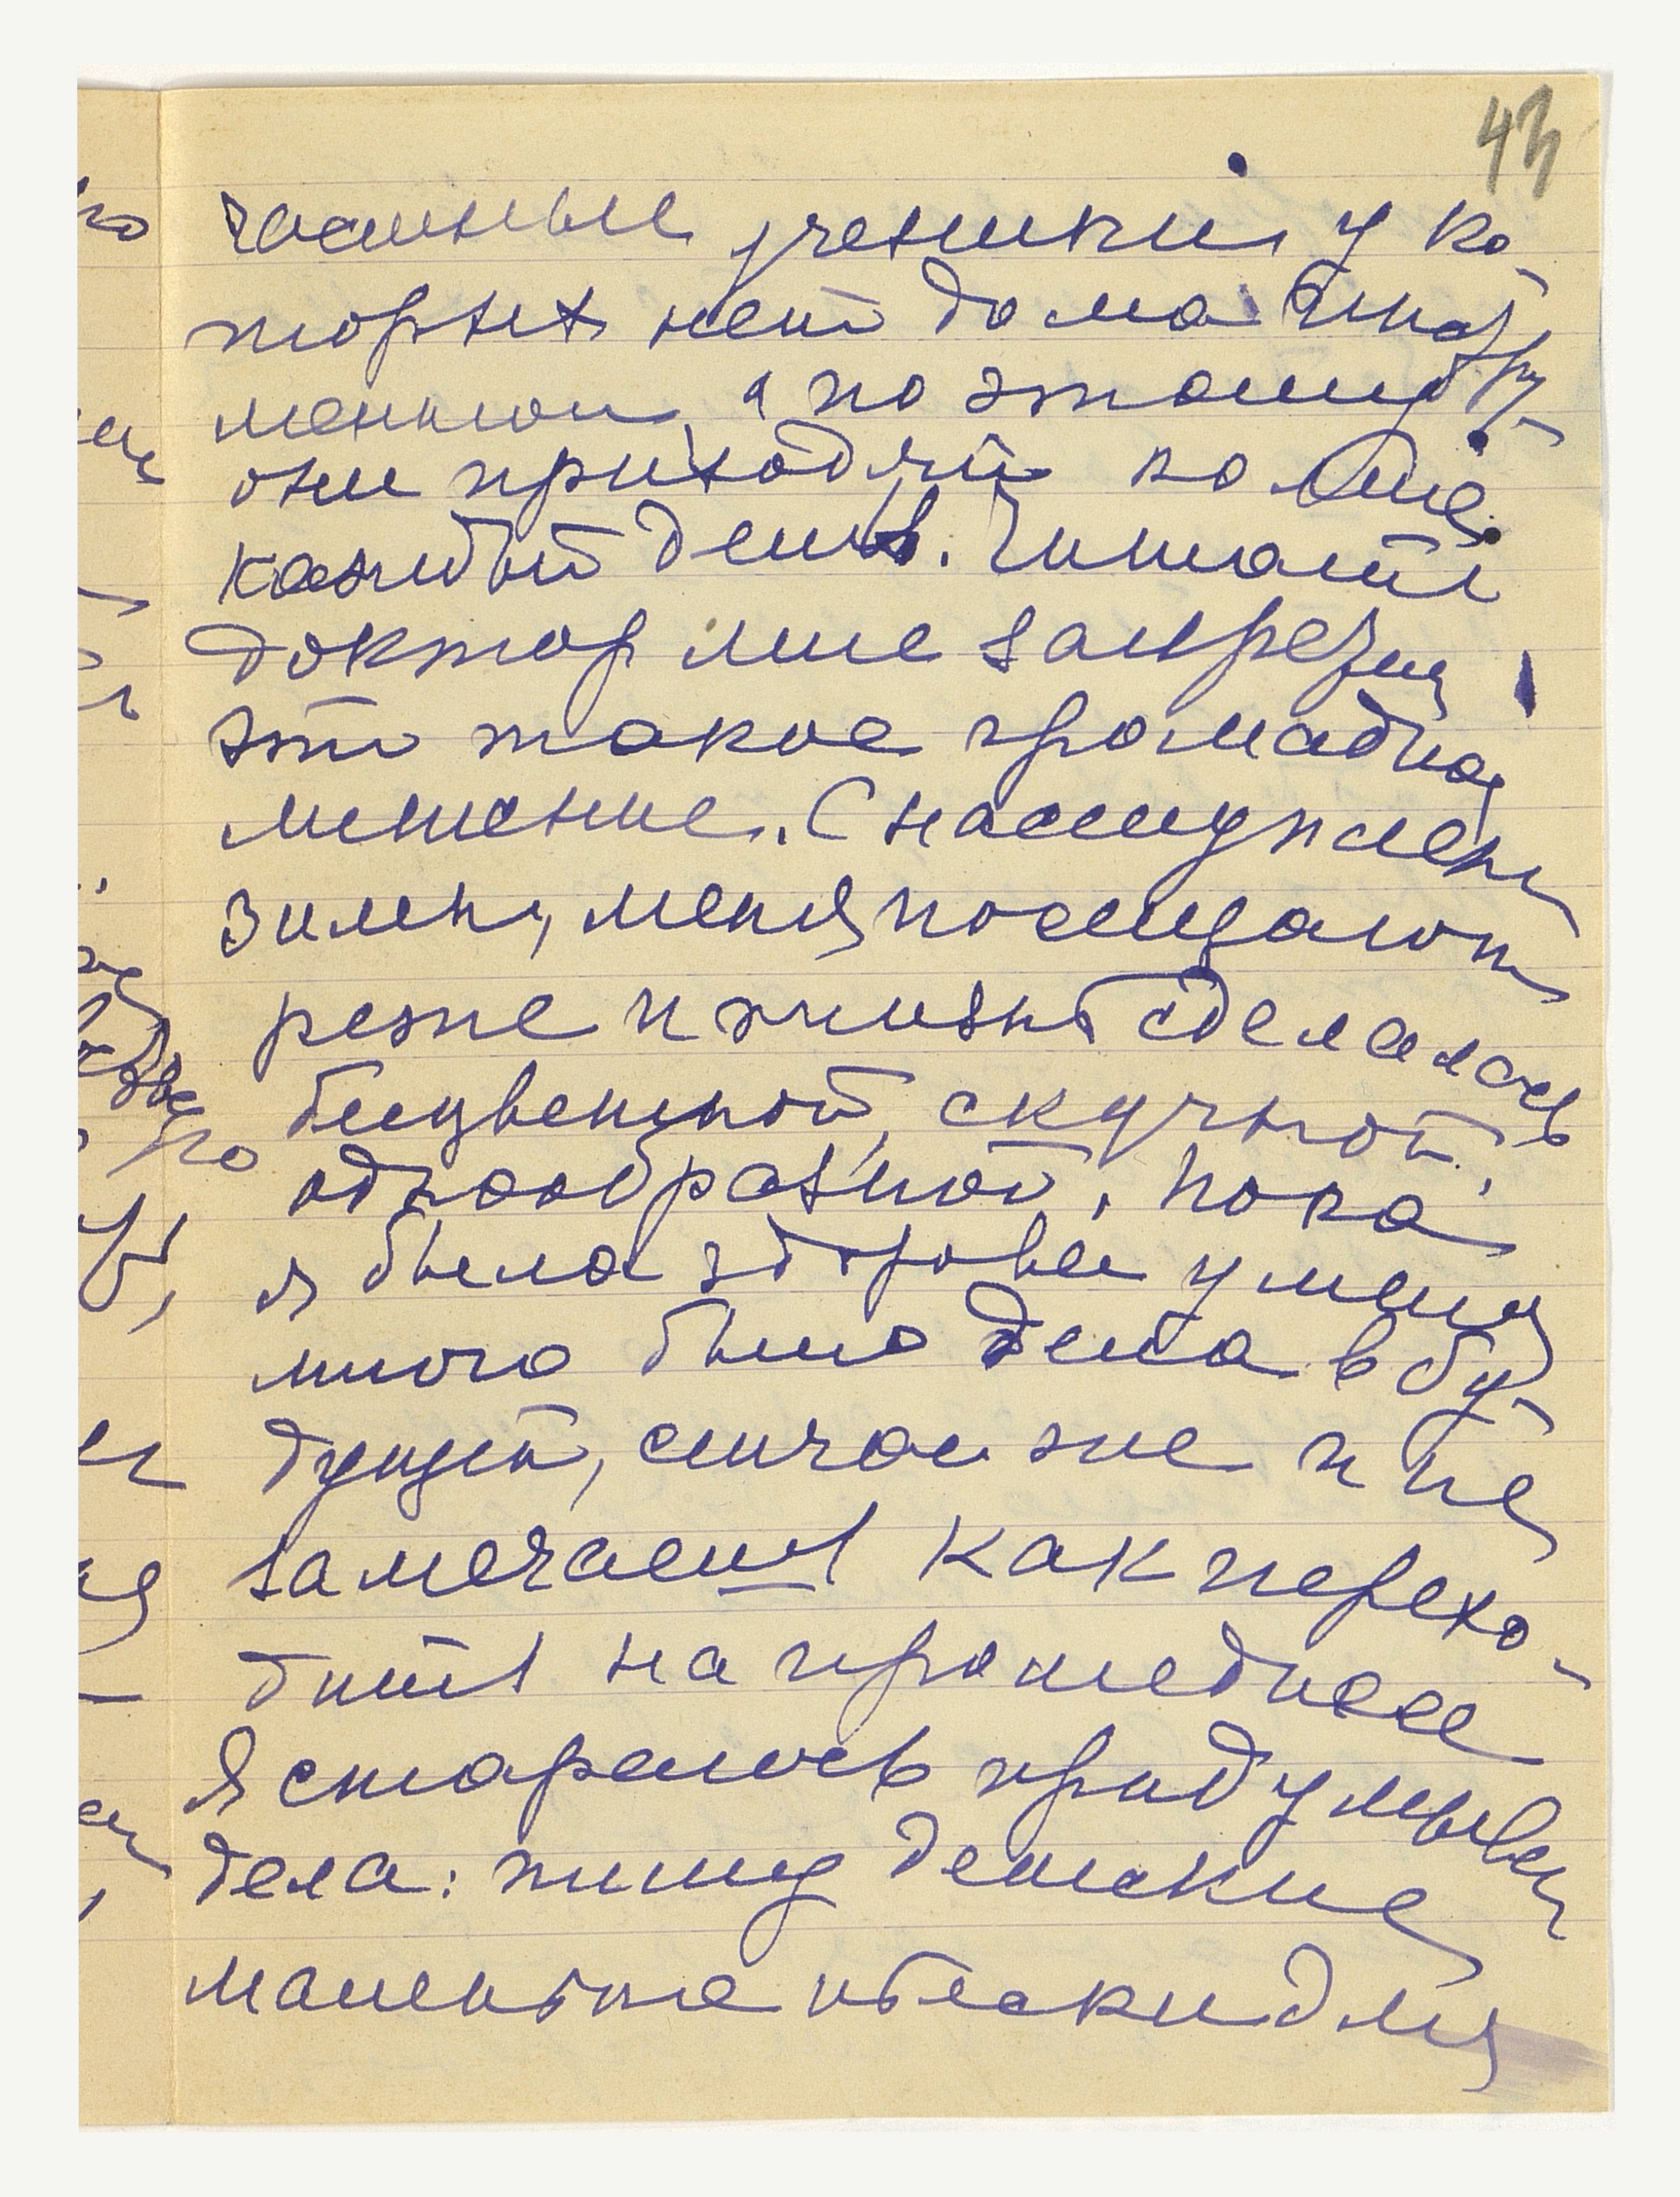 43
частные ученики, у ко-
торых нет дома инстру-
ментов, а по этому
они приходят ко мне
каждый день. Читать
доктор мне запретил,
это такое громадное
лишение. С наступлением
зимы, меня посещают
реже и жизнь сделалась
бесцветной, скучной,
однообразной. Пока
я была здоровее у меня
много было дела в бу-
дущем, сейчас же и не
замечаешь как перехо-
дишь на прошедшее
Я стараюсь придумывать
дела: пишу детские
маленькие пьески для